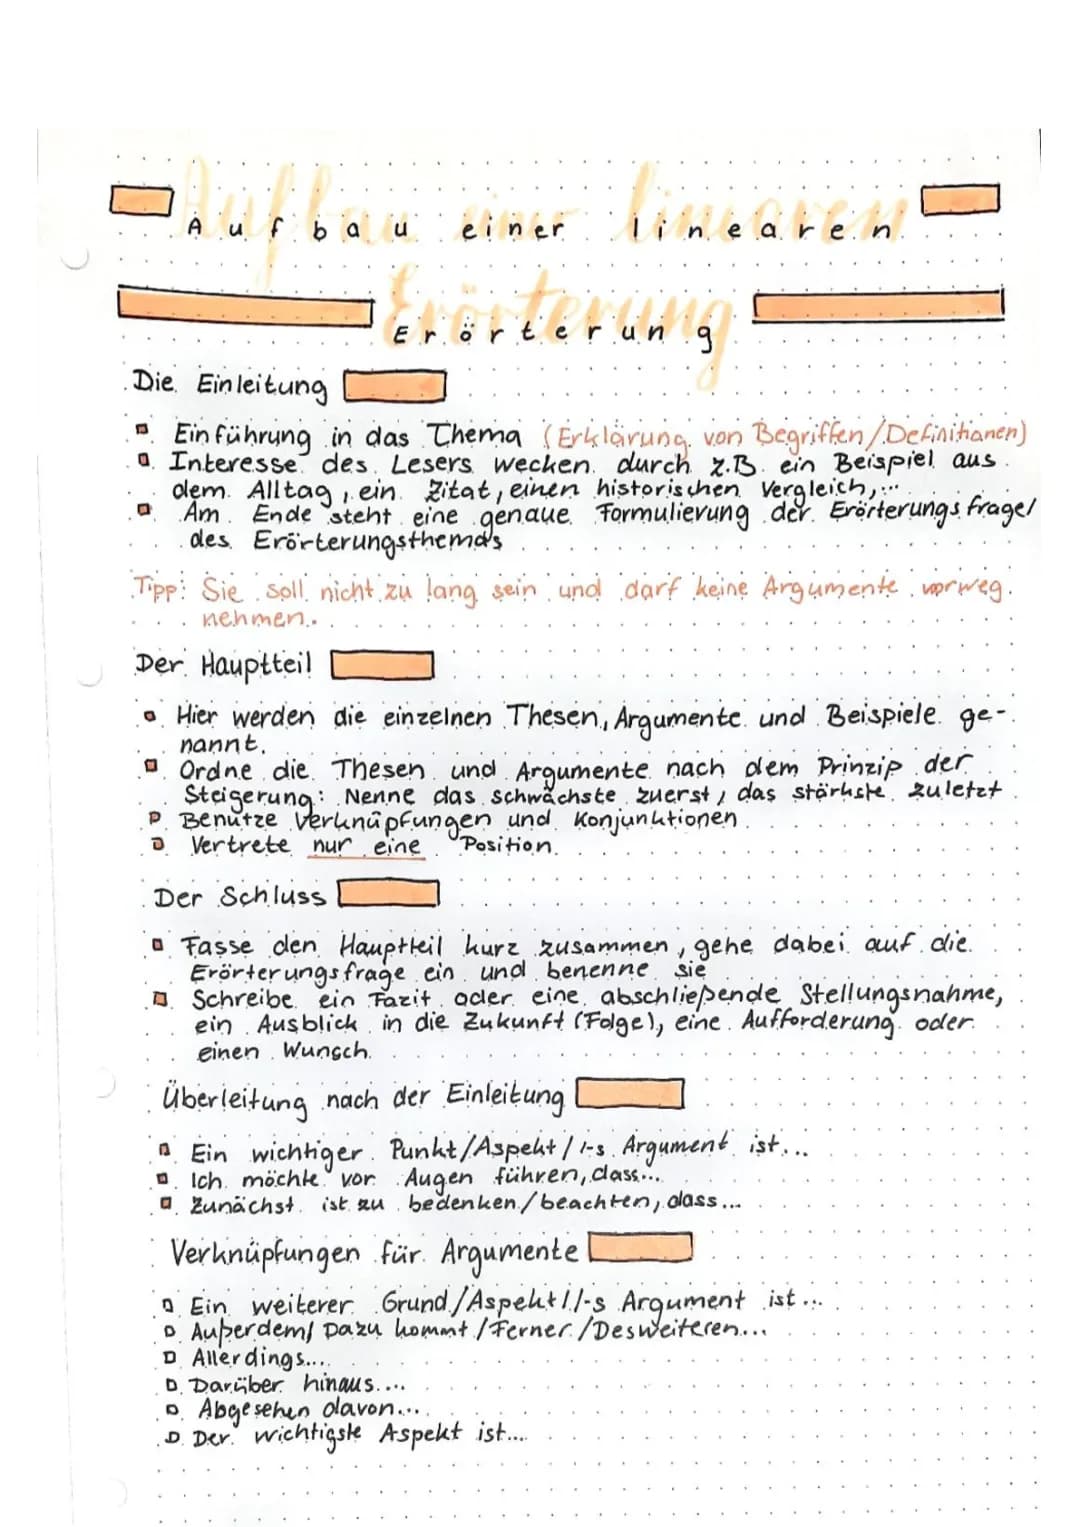 Aufbau einer linearen
Erörterung
Die Einleitung
Einführung in das Thema (Erklärung von Begriffen/Definitionen)
Interesse des Lesers wecken durch z.B. ein Beispiel aus
dem Alltag, ein Zitat, einen historischen Vergleich,...
Am Ende steht eine genaue Formulierung der Erörterungsfrage/
des Erörterungsthemas
Tipp: Sie soll nicht zu lang sein und darf keine Argumente vorweg
nehmen.
Der Hauptteil
Hier werden die einzelnen Thesen, Argumente und Beispiele ge-
nannt.
Ordne die Thesen und Argumente nach dem Prinzip der
Steigerung: Nenne das schwächste zuerst, das stärkste zuletzt
Benutze Verknüpfungen und Konjunktionen
Vertrete nur eine Position.
Der Schluss
Fasse den Hauptteil kurz zusammen, gehe dabei auf die
Erörterungsfrage ein und benenne sie
Schreibe ein Fazit oder eine abschließende Stellungsnahme,
ein Ausblick in die Zukunft (Folge), eine Aufforderung oder
einen Wunsch.
Überleitung nach der Einleitung
Ein wichtiger Punkt/Aspekt/1-s Argument ist...
Ich möchte vor Augen führen, dass...
Zunächst ist zu bedenken/beachten, dass...
Verknüpfungen für Argumente
Ein weiterer Grund/Aspekt/1-s Argument ist...
Außerdem/ Dazu kommt/Ferner/Desweiteren...
Allerdings...
Darüber hinaus...
Abgesehen davon...
Der wichtigste Aspekt ist...